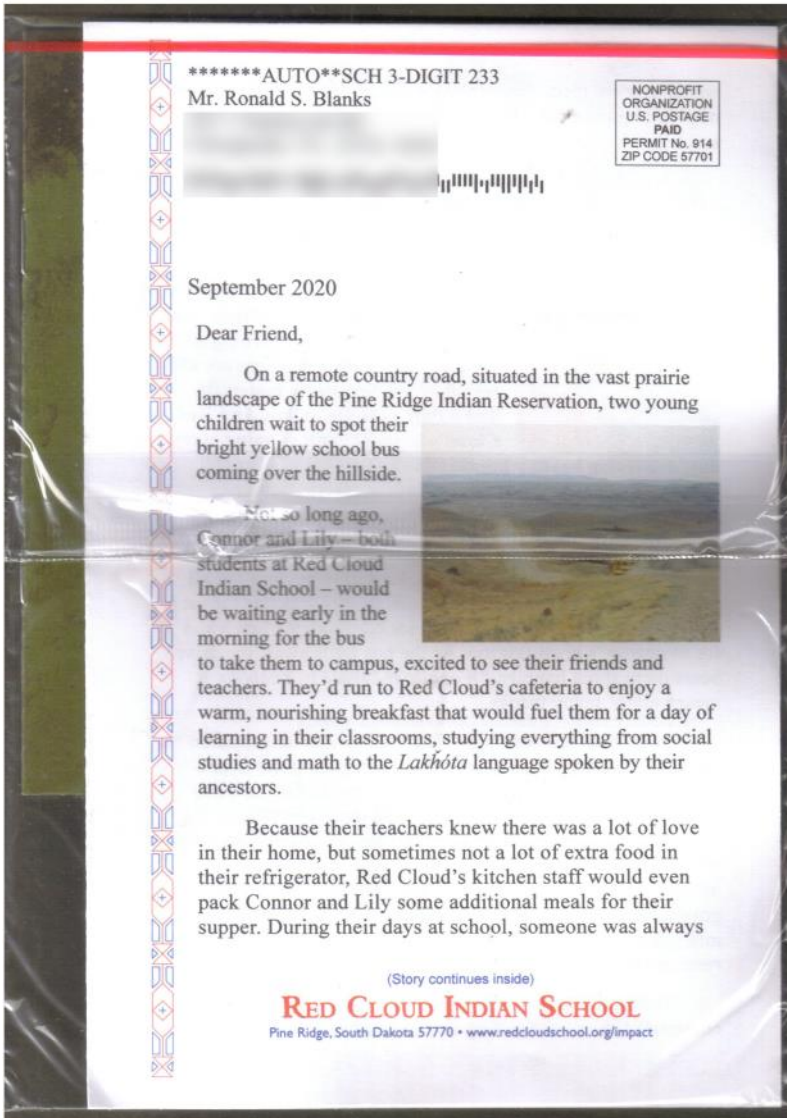 *******AUTO**SCH 3-DIGIT 233
Mr. Ronald S. Blanks
NONPROFIT
ORGANIZATION
U.S. POSTAGE
PAID
PERMIT No. 914
ZIP CODE 57701
September 2020
Dear Friend,
On a remote country road, situated in the vast prairie
landscape of the Pine Ridge Indian Reservation, two young
children wait to spot their
bright yellow school bus
coming over the hillside.
Not so long ago,
Connor and Lily – both
students at Red Cloud
Indian School – would
be waiting early in the
morning for the bus
to take them to campus, excited to see their friends and
teachers. They’d run to Red Cloud’s cafeteria to enjoy a
warm, nourishing breakfast that would fuel them for a day of
learning in their classrooms, studying everything from social
studies and math to the Lakȟóta language spoken by their
ancestors.
Because their teachers knew there was a lot of love
in their home, but sometimes not a lot of extra food in
their refrigerator, Red Cloud’s kitchen staff would even
pack Connor and Lily some additional meals for their
supper. During their days at school, someone was always
(Story continues inside)
RED CLOUD INDIAN SCHOOL
Pine Ridge, South Dakota 57770 • www.redcloudschool.org/impact